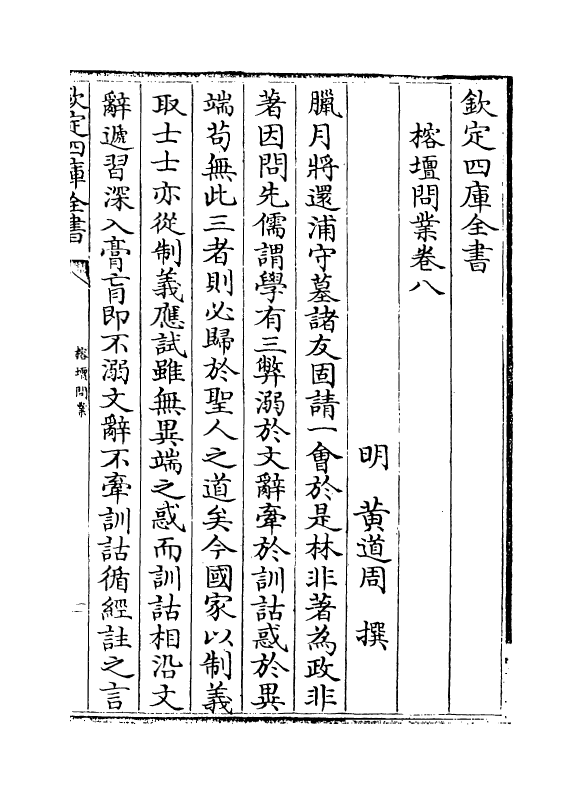 欽定四庫全書
榕壇問業卷八
明 黃道周 撰
臘月將還浦守墓諸友固請一會於是林非著為政非
著因問先儒謂學有三弊溺於文辭牽於訓詁惑於異
端茍無此三者則必歸於聖人之道矣今國家以制義
取士士亦從制義應試雖無異端之惑而訓詁相沿文
辭遞習深入膏肓即不溺文辭不牽訓詁循經註之言
欽定四庫全書
榕壇問業
一